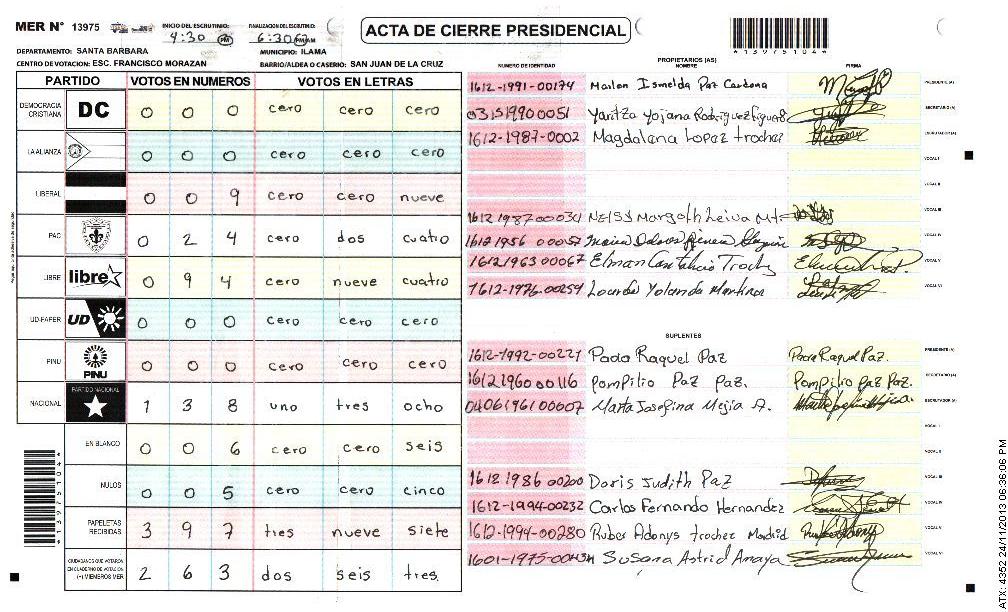 MER N° 13975
INICIO DEL ESCRUTINIO: 4:30 PM
FINALIZACION DEL ESCRUTINIO: 6:30 PM AM
ACTA DE CIERRE PRESIDENCIAL
*13975104*
DEPARTAMENTO: SANTA BARBARA MUNICIPIO: ILAMA
CENTRO DE VOTACION: ESC. FRANCISCO MORAZAN BARRIO/ALDEA O CASERIO: SAN JUAN DE LA CRUZ
PARTIDO VOTOS EN NUMEROS VOTOS EN LETRAS
DEMOCRACIA CRISTIANA DC 0 0 0 cero cero cero
LA ALIANZA 0 0 0 cero cero cero
LIBERAL 0 0 9 cero cero nueve
PAC 0 2 4 cero dos cuatro
LIBRE libre 0 9 4 cero nueve cuatro
UD-FAPER UD 0 0 0 cero cero cero
PINU PINU 0 0 0 cero cero cero
NACIONAL PARTIDO NACIONAL 1 3 8 uno tres ocho
EN BLANCO 0 0 6 cero cero seis
NULOS 0 0 5 cero cero cinco
PAPELETAS RECIBIDAS 3 9 7 tres nueve siete
CIUDADANOS QUE VOTARON EN CUADERNO DE VOTACION (+) MIEMBROS MER 2 6 3 dos seis tres
*13975104*
PROPIETARIOS (AS)
NUMERO DE IDENTIDAD NOMBRE FIRMA
1612-1991-00174 Marlen Ismelda Paz Cardona PRESIDENTE (A)
0315199000051 Yaritza Yojana Rodriguez Figueroa SECRETARIO (A)
1612-1987-0002 Magdalana Lopez trochez ESCRUTADOR (A)
VOCAL I
VOCAL II
1612198700031 Margoth Leiva VOCAL III
1612 1956 00057 VOCAL IV
1612196300067 Elman VOCAL V
1612-1976-00259 Lourdes Yolanda Martinez VOCAL VI
SUPLENTES
1612-1992-00221 Paola Raquel Paz Paola Raquel Paz. PRESIDENTE (A)
1612196000116 Pompilio Paz Paz. Pompilio Paz Paz. SECRETARIO (A)
0406196100007 Marta Josefina Mejia A. ESCRUTADOR (A)
VOCAL I
VOCAL II
1612 1986 00200 Doris Judith Paz VOCAL III
1612-1994-00232 Carlos Fernando Hernandez VOCAL IV
1612-1994-00280 Ruber Adonys trochez Madrid VOCAL V
Susana Astrid Amaya VOCAL VI
ATX: 4352 24/11/2013 06:36:06 PM